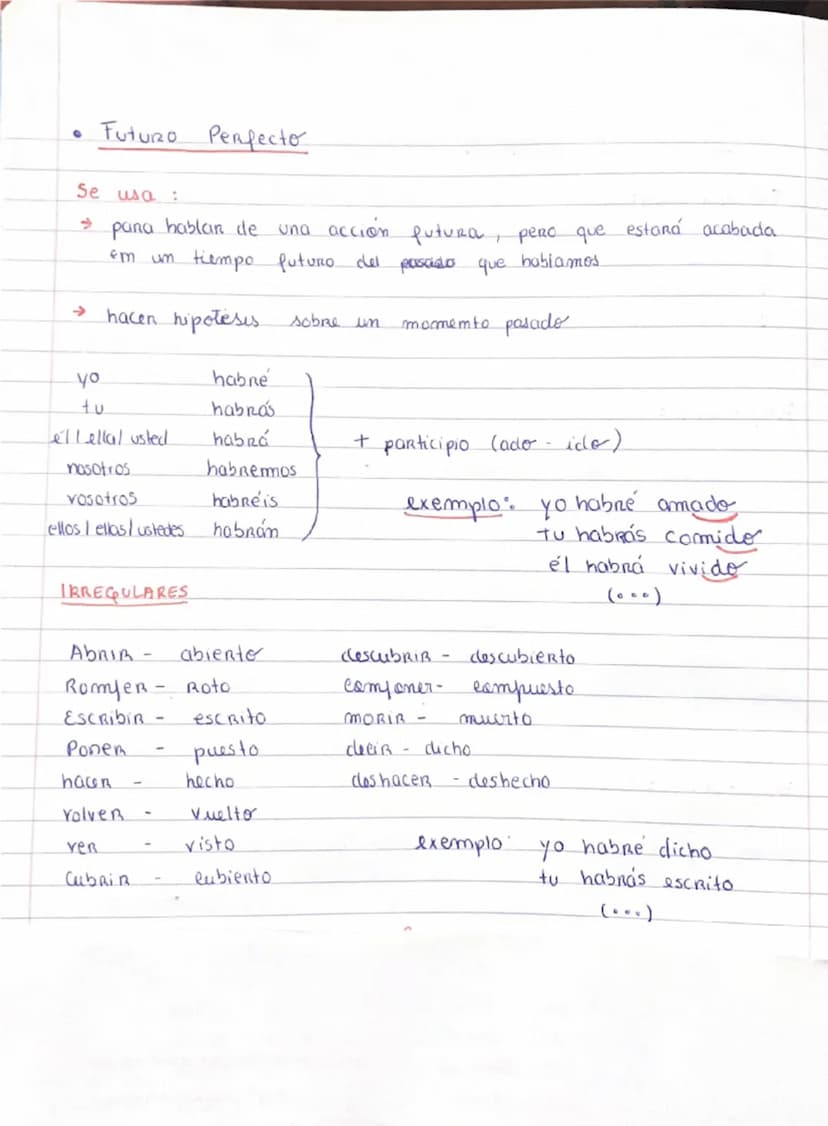 • Futuro Perfecto
Se usa :
→ para hablar de una acción futura, pero que estará acabada
em un tiempo futuro del pasado que hablamos
→ hacer hipotésis sobre un momemto pasado
yo habré
tu habrás
él / ella / usted habrá + participio (ado - ido)
nosotros habremos
vosotros habréis exemplo: yo habré amado
ellos / ellas / ustedes habrán tu habrás comido
él habrá vivido
IRREGULARES (...)
Abrir - abierto descubrir - descubierto
Romper - Roto componer - compuesto
Escribir - escrito morir - muerto
Poner - puesto decir - dicho
hacer - hecho deshacer - deshecho
volver - vuelto
ver - visto exemplo: yo habré dicho
Cubrir - cubierto tu habrás escrito
(...)